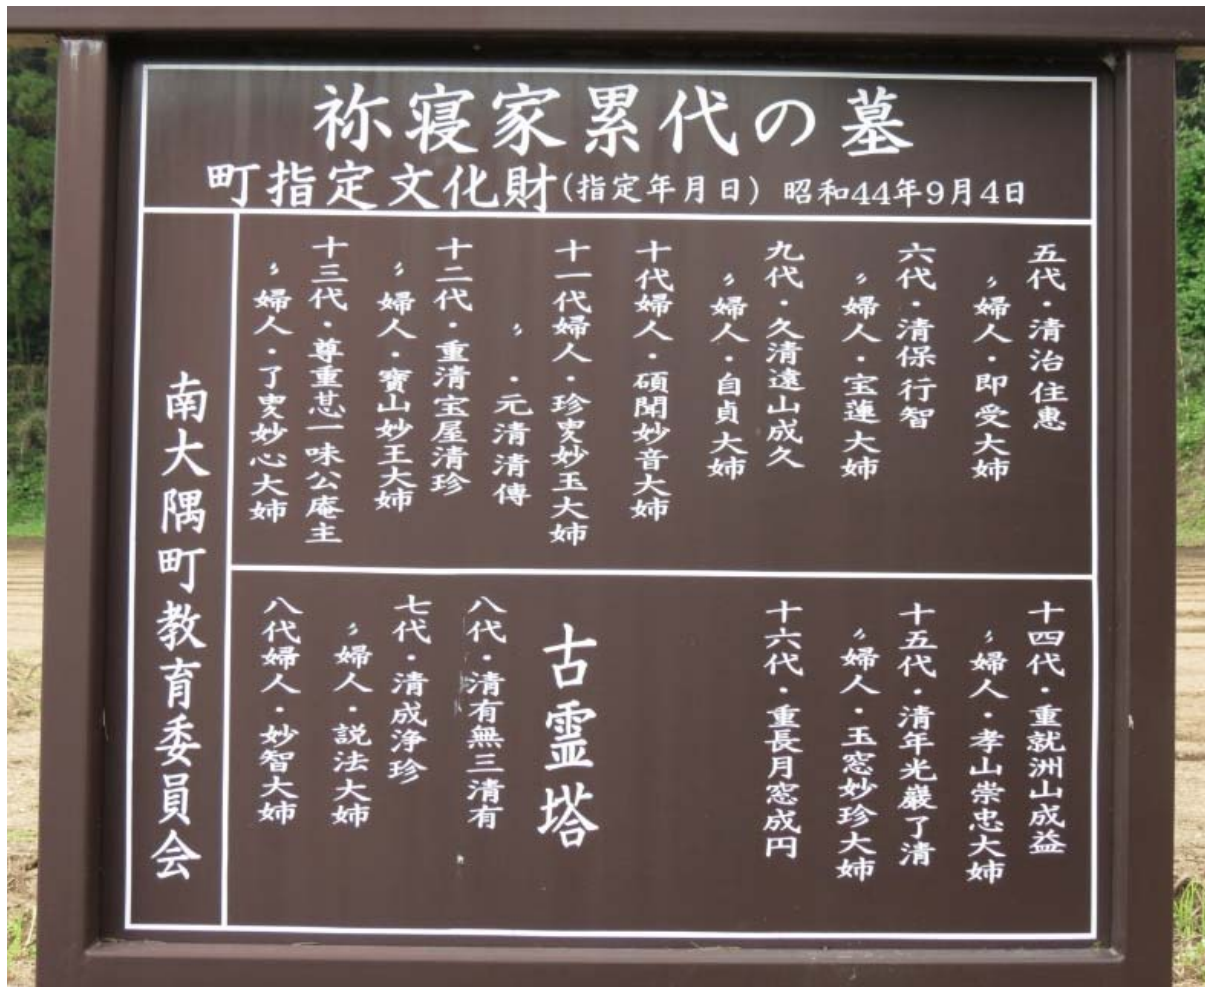 祢寝家累代の墓
町指定文化財(指定年月日) 昭和44年9月4日
五代・清治住惠
〃婦人・即受大姉
六代・清保行智
〃婦人・宝蓮大姉
九代・久清遠山成久
〃婦人・自貞大姉
十代婦人・碩聞妙音大姉
十一代婦人・珍叟妙玉大姉
〃・元清清傳
十二代・重清宝屋清珍
〃婦人・寶山妙王大姉
十三代・尊重恷一味公庵主
〃婦人・了叟妙心大姉
十四代・重就洲山成益
〃婦人・孝山崇忠大姉
十五代・清年光巖了清
〃婦人・玉窓妙珍大姉
十六代・重長月窓成円
古霊塔
八代・清有無三清有
七代・清成浄珍
〃婦人・説法大姉
八代婦人・妙智大姉
南大隅町教育委員会